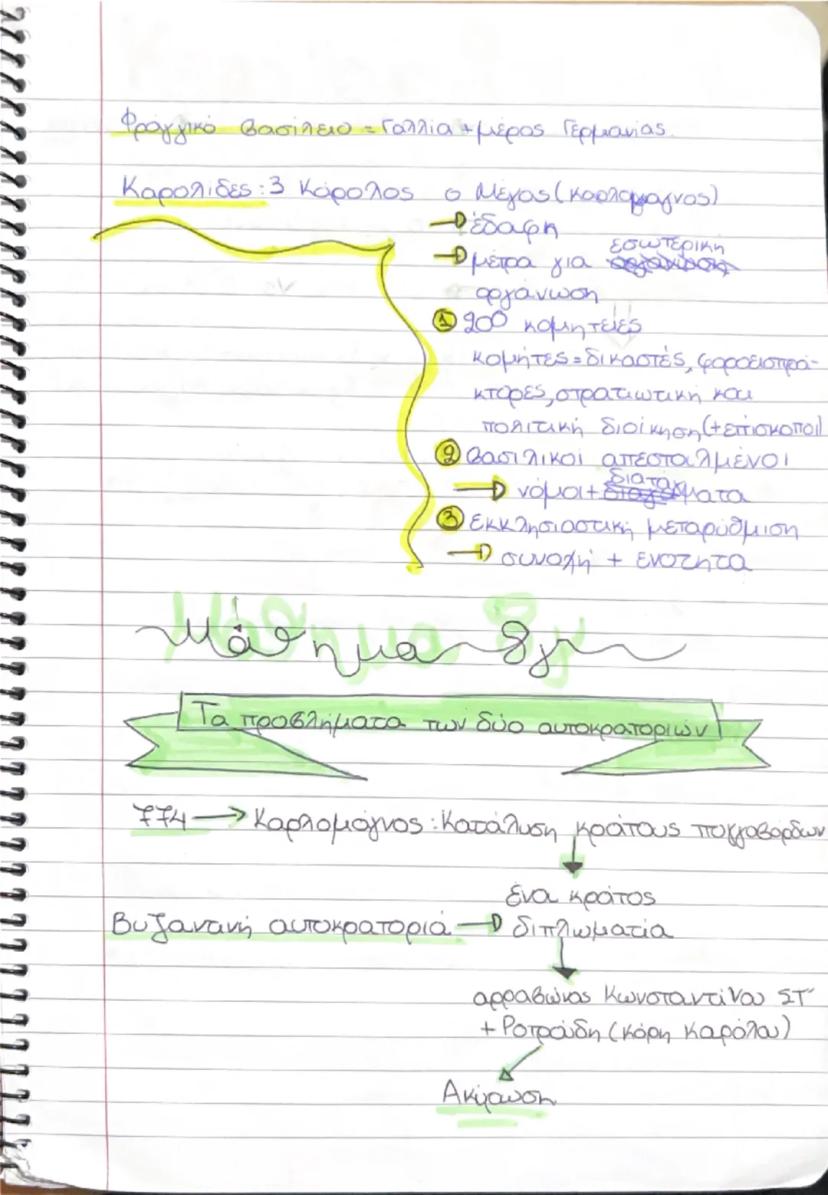 Φραγγικό Βασίλειο = Γαλλία + μέρος Γερμανίας.
Καρολίδες: 3 Κάρολος ο Μέγας (Καρλομάγνος)
έδαφη
μέτρα για εσωτερική
οργάνωση
① 200 κομητείες
κομήτες = δικαστές, φοροεισπρά-
κτορες, στρατιωτική και
πολιτική διοίκηση (+επίσκοποι)
② Βασιλικοι απεσταλμένοι
→ νόμοι + διατάγματα
③ Εκκλησιαστική μεταρύθμιση
→ συνοχή + ενότητα
Μάθημα 8γ
Τα προβλήματα των δύο αυτοκρατοριών
774 → Καρλομάγνος: Κατάλυση κράτους Λογγοβάρδων
ένα κράτος
Βυζαντινή αυτοκρατοριά → διπλωματία
αρραβώνας Κωνσταντίνου ΣΤ'
+ Ροτρούδη (κόρη Καρόλου)
Ακύρωση